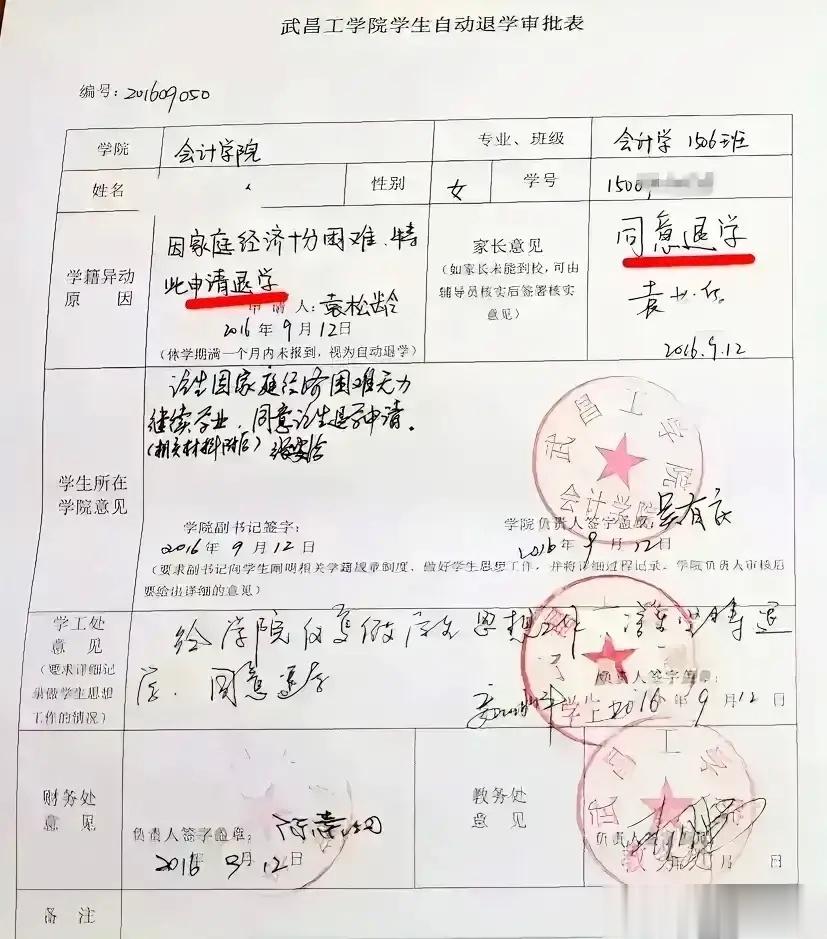 武昌工学院学生自动退学审批表
编号:201609050
学院 会计学院 专业、班级 会计学 1506班
姓名 性别 女 学号 1500
学籍异动原因
因家庭经济十分困难、特
此申请退学
申请人:袁松龄
2016年9月12日
(休学期满一个月内未报到,视为自动退学)
家长意见
(如家长未能到校,可由
辅导员核实后签署核实
意见)
同意退学
2016.9.12
学生所在
学院意见
该生因家庭经济困难无力
继续学业,同意该生退学申请。
(相关材料附后)
学院副书记签字:
2016年9月12日
武昌工学院
会计学院
学院负责人签字盖章:吴有庆
2016年9月12日
(要求副书记向学生阐明相关学籍规章制度,做好学生思想工作,并将详细过程记录。学院负责人审核后
要给出详细的意见)
学工处
意见
(要求详细记
录做学生思想
工作的情况)
经学院反复做学生思想工作,学生坚持退
学,同意退学
负责人签字盖章:
2016年9月12日
财务处
意见
负责人签字盖章:
2016年9月12日
教务处
意见
武昌工学
负责人
月 日
备注